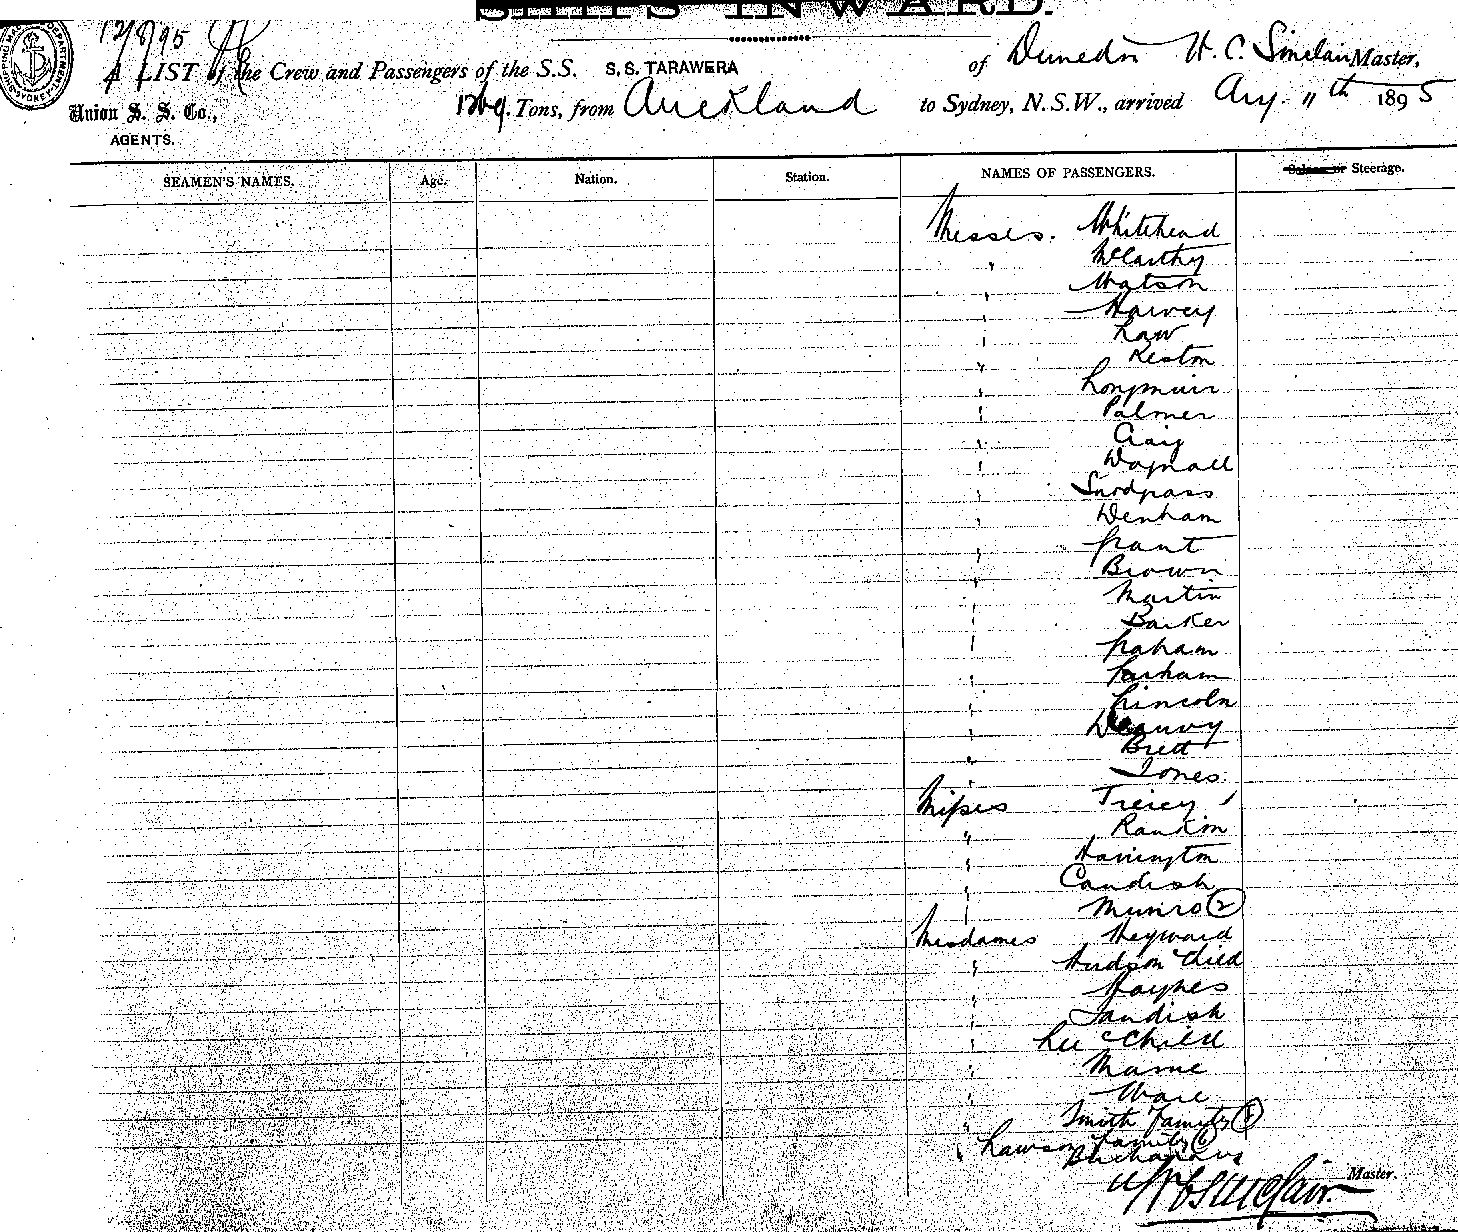 SHIPS INWARD.
12/8/95
A LIST of the Crew and Passengers of the S.S. S.S. TARAWERA of Dunedin W. C. Sinclair Master,
Union S. S. Co., 1269. Tons, from Auckland to Sydney, N.S.W., arrived Aug. 11th 1895
AGENTS.
SEAMEN'S NAMES. Age. Nation. Station. NAMES OF PASSENGERS. Saloon or Steerage.
Messrs. Whitehead
" McCarthy
" Watson
" Harvey
" Law
" Keston
" Longmuir
" Palmer
" Craig
" Wagnall
" Snodgrass
" Denham
" Grant
" Brown
" Martin
" Barker
" Graham
" Parham
" Lincoln
"
" Brett
" Jones
Misses
" Rankin
" Harrington
" Candish
" Munro (2)
Mesdames Heyward
" Hudson & Child
" Haynes
" Sandish
" Lee & Child
" Marne
" Ware
" Smith Family
" Lawson Family
Buchanan
W C Sinclair. Master.